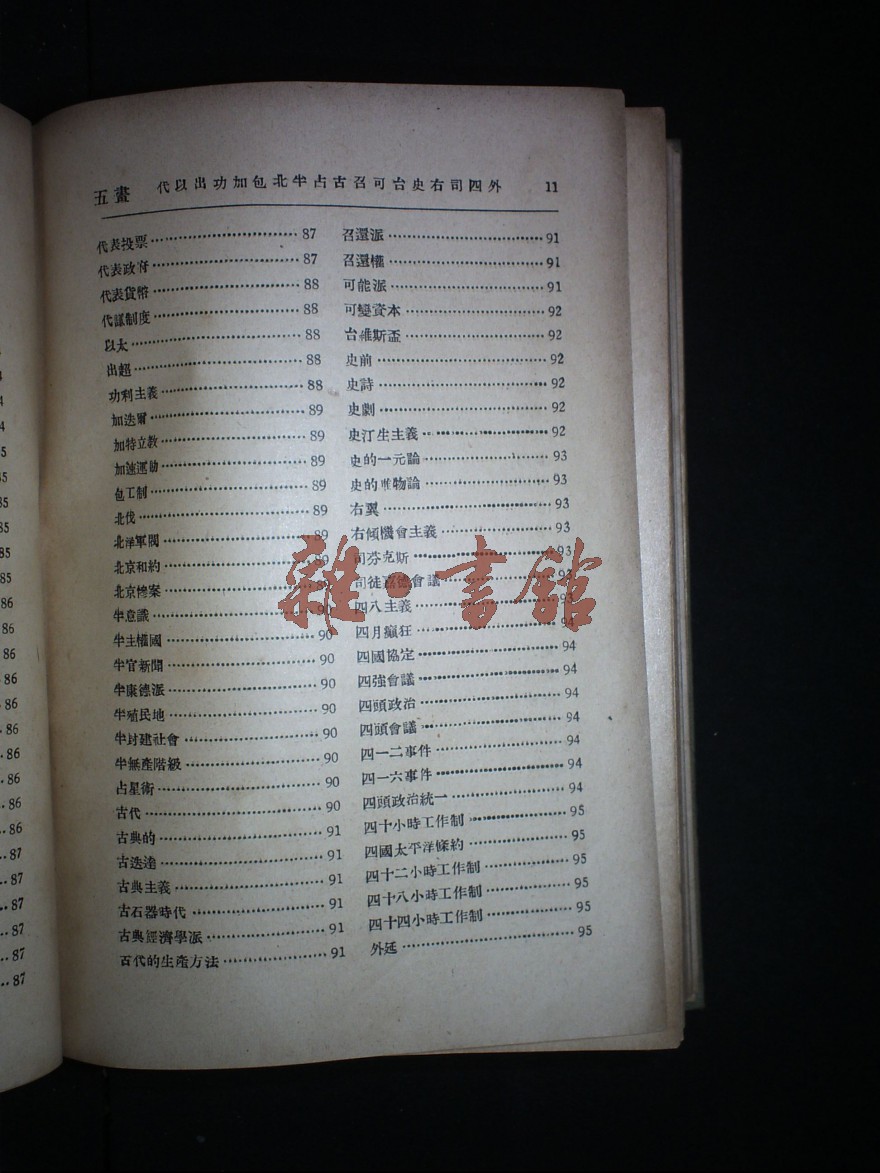 五畫 代以出功加包北半占古召可台史右司四外 11
代表投票 87
代表政府 87
代表貨幣 88
代議制度 88
以太 88
出超 88
功利主義 88
加迭爾 89
加特立教 89
加速運動 89
包工制 89
北伐 89
北洋軍閥 89
北京和約 89
北京檔案 89
半意識 90
半主權國 90
半官新聞 90
半康德派 90
半殖民地 90
半封建社會 90
半無產階級 90
占星術 90
古代 90
古典的 91
古迭達 91
古典主義 91
古石器時代 91
古典經濟學派 91
古代的生產方法 91
召還派 91
召還權 91
可能派 91
可變資本 92
台維斯盃 92
史前 92
史詩 92
史劇 92
史汀生主義 92
史的一元論 93
史的唯物論 93
右翼 93
右傾機會主義 93
司芬克斯 93
司徒嘉德會議 93
四八主義 93
四月瘋狂 94
四國協定 94
四強會議 94
四頭政治 94
四頭會議 94
四一二事件 94
四一六事件 94
四頭政治統一 94
四十小時工作制 95
四國太平洋條約 95
四十二小時工作制 95
四十八小時工作制 95
四十四小時工作制 95
外延 95
4
4
4
5
85
85
85
85
86
86
86
86
86
86
86
87
87
87
87
87
87
雜·書館